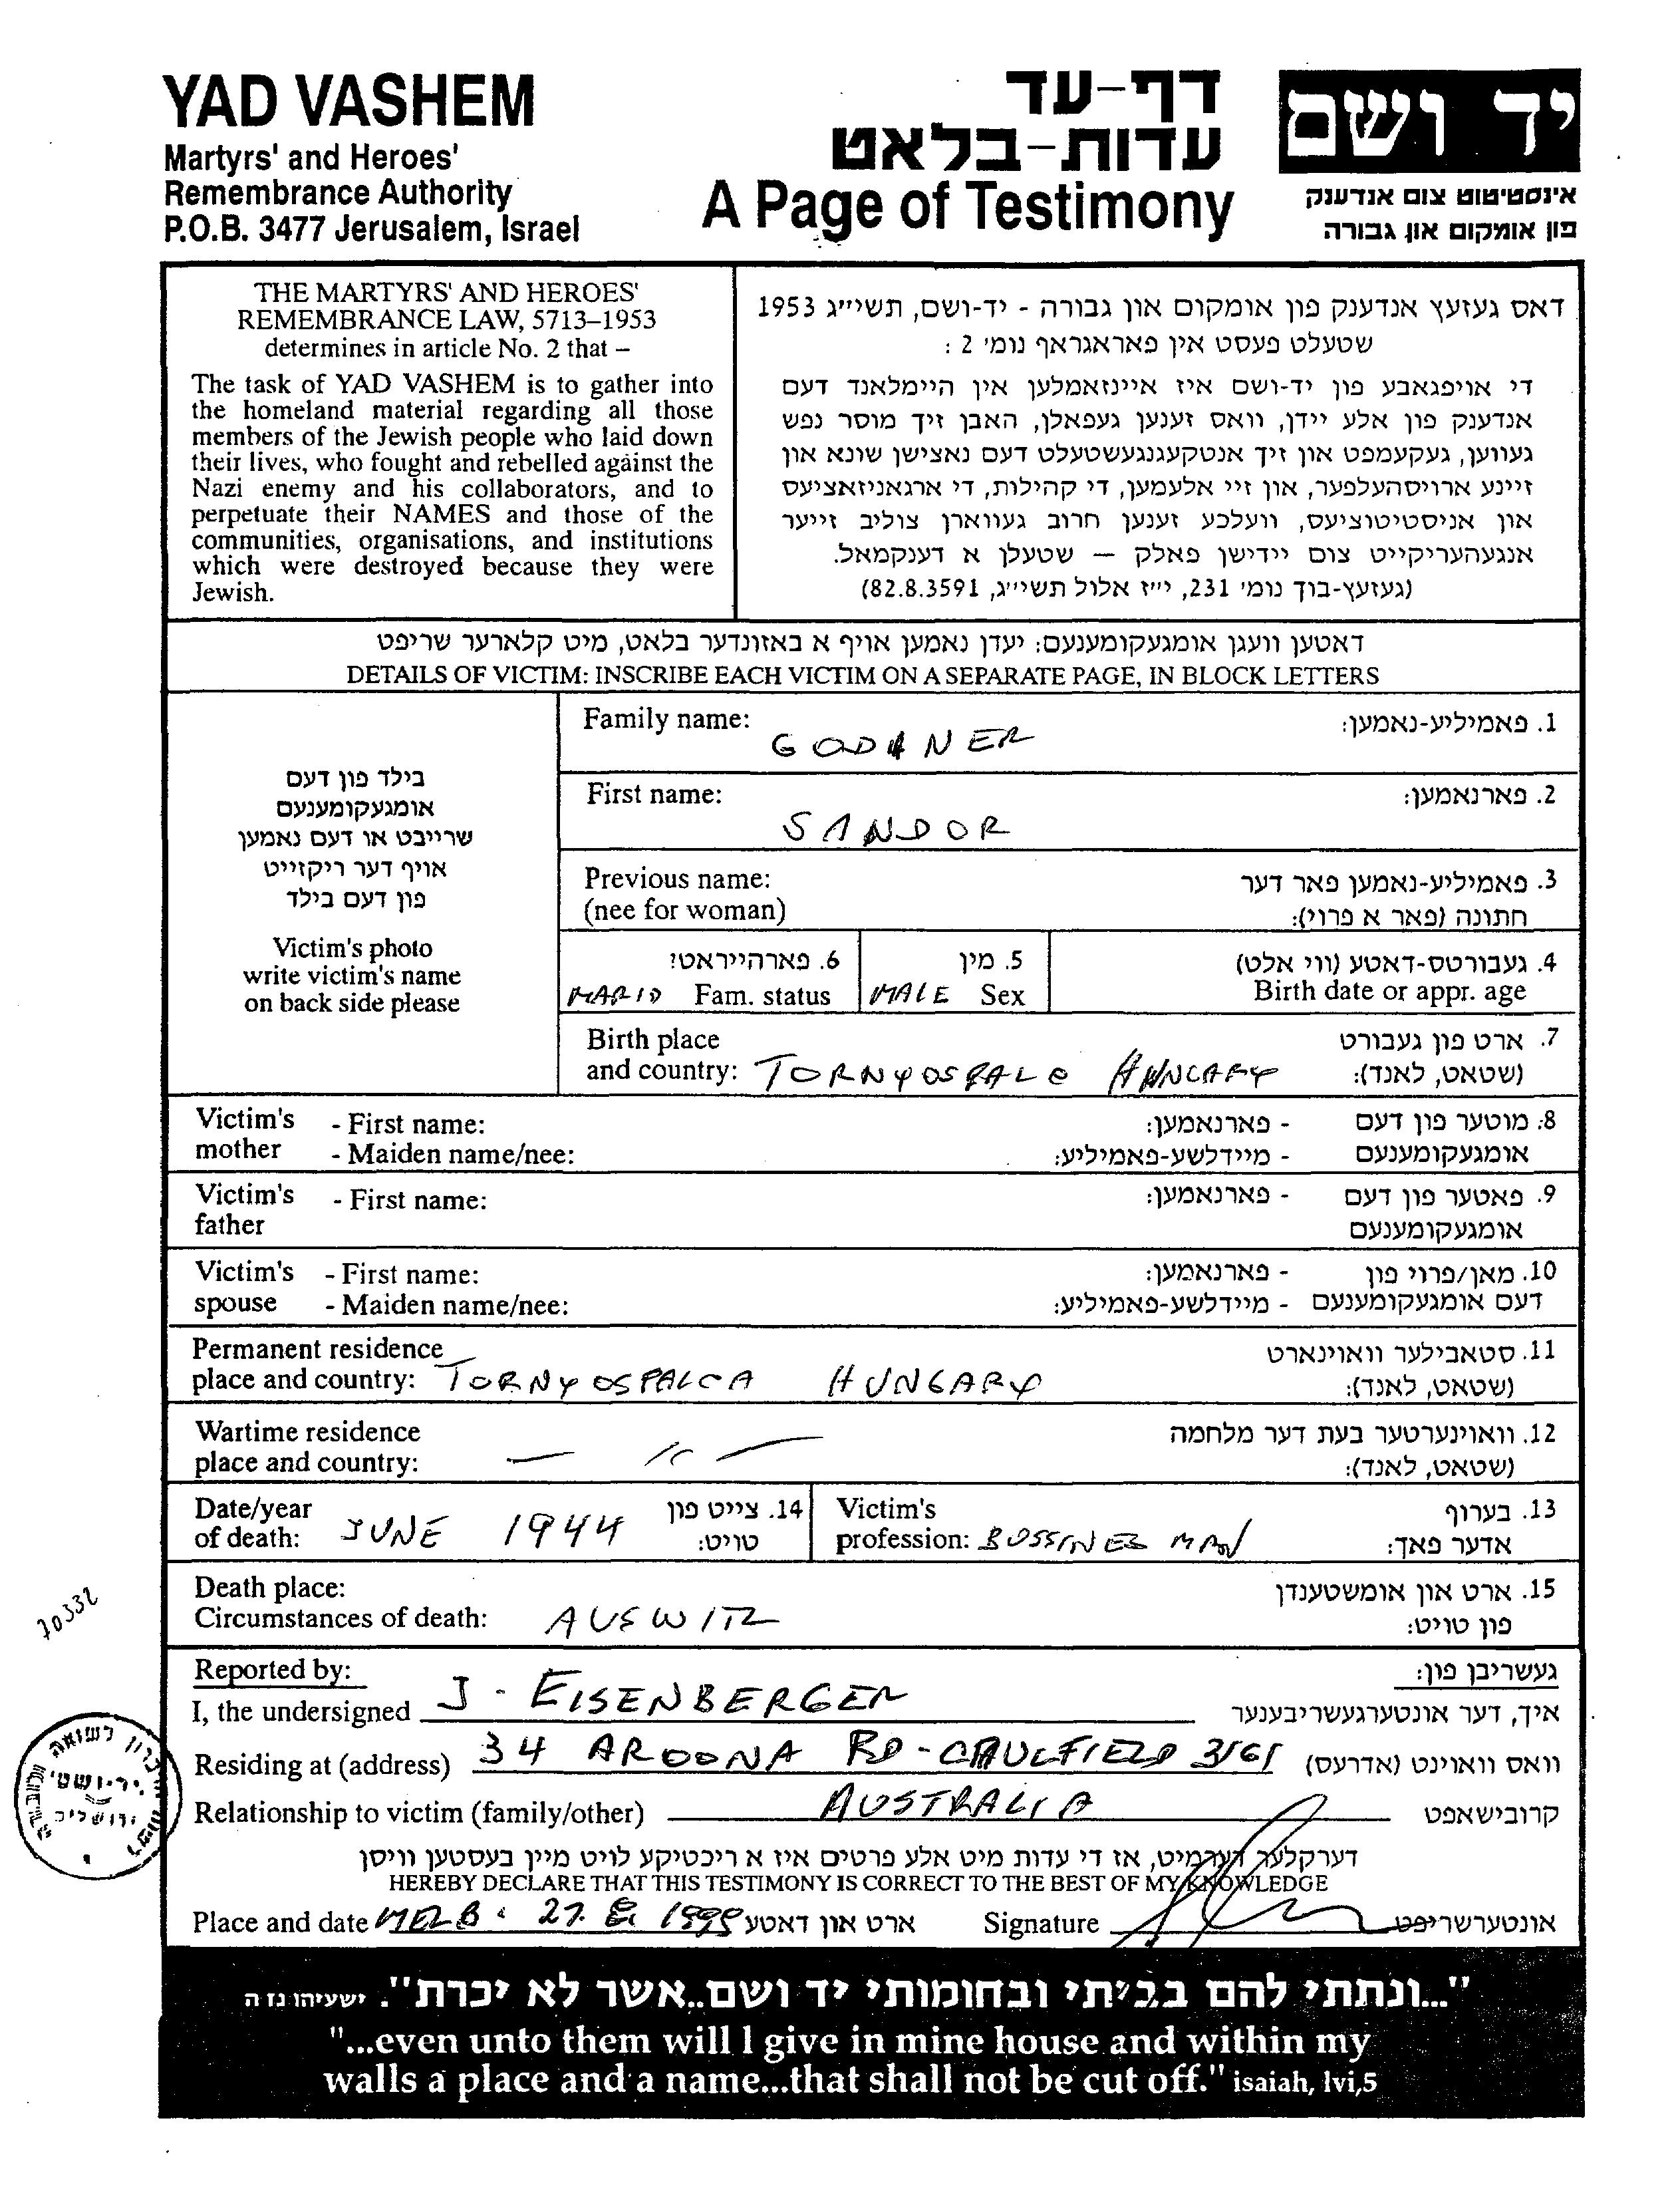 YAD VASHEM
Martyrs' and Heroes'
Remembrance Authority
P.O.B. 3477 Jerusalem, Israel
דף-עד
עדות-בלאט
A Page of Testimony
יד ושם
אינסטיטוט צום אנדענק
פון אומקום און גבורה
THE MARTYRS' AND HEROES'
REMEMBRANCE LAW, 5713–1953
determines in article No. 2 that –
The task of YAD VASHEM is to gather into
the homeland material regarding all those
members of the Jewish people who laid down
their lives, who fought and rebelled against the
Nazi enemy and his collaborators, and to
perpetuate their NAMES and those of the
communities, organisations, and institutions
which were destroyed because they were
Jewish.
דאס געזעץ אנדענק פון אומקום און גבורה - יד-ושם, תשי״ג 1953
שטעלט פעסט אין פאראגראף נומ׳ 2 :
די אויפגאבע פון יד-ושם איז איינזאמלען אין היימלאנד דעם
אנדענק פון אלע יידן, וואס זענען געפאלן, האבן זיך מוסר נפש
געווען, געקעמפט און זיך אנטקעגנגעשטעלט דעם נאצישן שונא און
זיינע ארויסהעלפער, און זיי אלעמען, די קהילות, די ארגאניזאציעס
און אניסטיטוציעס, וועלכע זענען חרוב געווארן צוליב זייער
אנגעהעריקייט צום יידישן פאלק — שטעלן א דענקמאל.
(געזעץ-בוך נומ׳ 231, י״ז אלול תשי״ג, 82.8.3591)
דאטען וועגן אומגעקומענעם: יעדן נאמען אויף א באזונדער בלאט, מיט קלארער שריפט
DETAILS OF VICTIM: INSCRIBE EACH VICTIM ON A SEPARATE PAGE, IN BLOCK LETTERS
בילד פון דעם
אומגעקומענעם
שרייבט או דעם נאמען
אויף דער ריקזייט
פון דעם בילד
Victim's photo
write victim's name
on back side please
Family name: GODANER 1. פאמיליע-נאמען:
First name: SANDOR 2. פארנאמען:
Previous name: 3. פאמיליע-נאמען פאר דער
(nee for woman) חתונה (פאר א פרוי):
6. פארהייראט? 5. מין 4. געבורטס-דאטע (ווי אלט)
MARID Fam. status MALE Sex Birth date or appr. age
Birth place 7. ארט פון געבורט
and country: TORNYOSPALC HUNGARY (שטאט, לאנד):
Victim's - First name: - פארנאמען: 8. מוטער פון דעם
mother - Maiden name/nee: - מיידלשע-פאמיליע: אומגעקומענעם
Victim's - First name: - פארנאמען: 9. פאטער פון דעם
father אומגעקומענעם
Victim's - First name: - פארנאמען: 10. מאן/פרוי פון
spouse - Maiden name/nee: - מיידלשע-פאמיליע: דעם אומגעקומענעם
Permanent residence 11. סטאבילער וואוינארט
place and country: TORNYOSPALCA HUNGARY (שטאט, לאנד):
Wartime residence 12. וואוינערטער בעת דער מלחמה
place and country: (שטאט, לאנד):
Date/year 14. צייט פון Victim's 13. בערוף
of death: JUNE 1944 טויט: profession: BUSSINES MAN אדער פאך:
Death place: 15. ארט און אומשטענדן
Circumstances of death: AUSWITZ פון טויט:
70332
Reported by: געשריבן פון:
I, the undersigned J - EISENBERGER איך, דער אונטערגעשריבענער
Residing at (address) 34 AROONA RD - CAULFIELD 3161 וואס וואוינט (אדרעס)
Relationship to victim (family/other) AUSTRALIA קרובישאפט
דערקלער דערמיט, אז די עדות מיט אלע פרטים איז א ריכטיקע לויט מיין בעסטען וויסן
HEREBY DECLARE THAT THIS TESTIMONY IS CORRECT TO THE BEST OF MY KNOWLEDGE
Place and date MELB. 27. 1999 ארט און דאטע Signature אונטערשריפט
"...ונתתי להם בביתי ובחומותי יד ושם..אשר לא יכרת". ישעיהו נז ה
"...even unto them will I give in mine house and within my
walls a place and a name...that shall not be cut off." isaiah, lvi,5